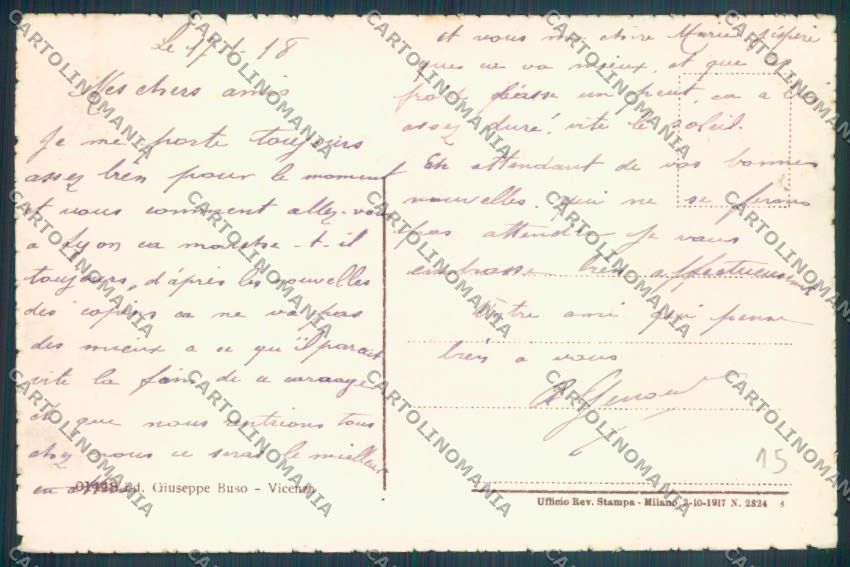 Le 17 1 - 18
Mes chers amis
Je me porte toujours
assez bien pour le moment
et vous comment allez-vous
a Lyon ca marche-t-il
toujours, d'après les nouvelles
des copins ca ne va pas
des mieux a ce qu'il parait
vite la fin de ce carnage
et que nous rentrions tous
chez nous ce seras le meilleur
en
et vous ma chère Marie j'espère
que ca va mieux, et que le
froid laisse un peut, ca a
assez duré, vite le soleil.
En attendant de vos bonnes
nouvelles. qui ne se ferons
pas attendre Je vous
embrasse bien affectueusement
Votre ami qui pense
bien a vous
01449 Ed. Giuseppe Buso - Vicenza
Ufficio Rev. Stampa - Milano 2-10-1917 N. 2824
15
CARTOLINOMANIA